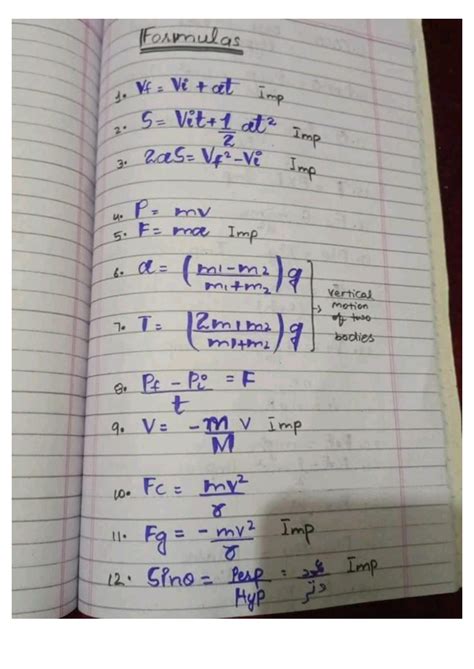 Formulas
1. Vf = Vi + at Imp
2. S = Vit + 1/2 at² Imp
3. 2aS = Vf² - Vi Imp
4. P = mv
5. F = ma Imp
6. a = (m1 - m2 / m1 + m2) g
7. T = (2m1m2 / m1 + m2) g
vertical
motion
of two
bodies
8. Pf - Pi / t = F
9. V = -m/M v Imp
10. Fc = mv²/r
11. Fg = - mv²/r Imp
12. Sinθ = Perp/Hyp = Imp